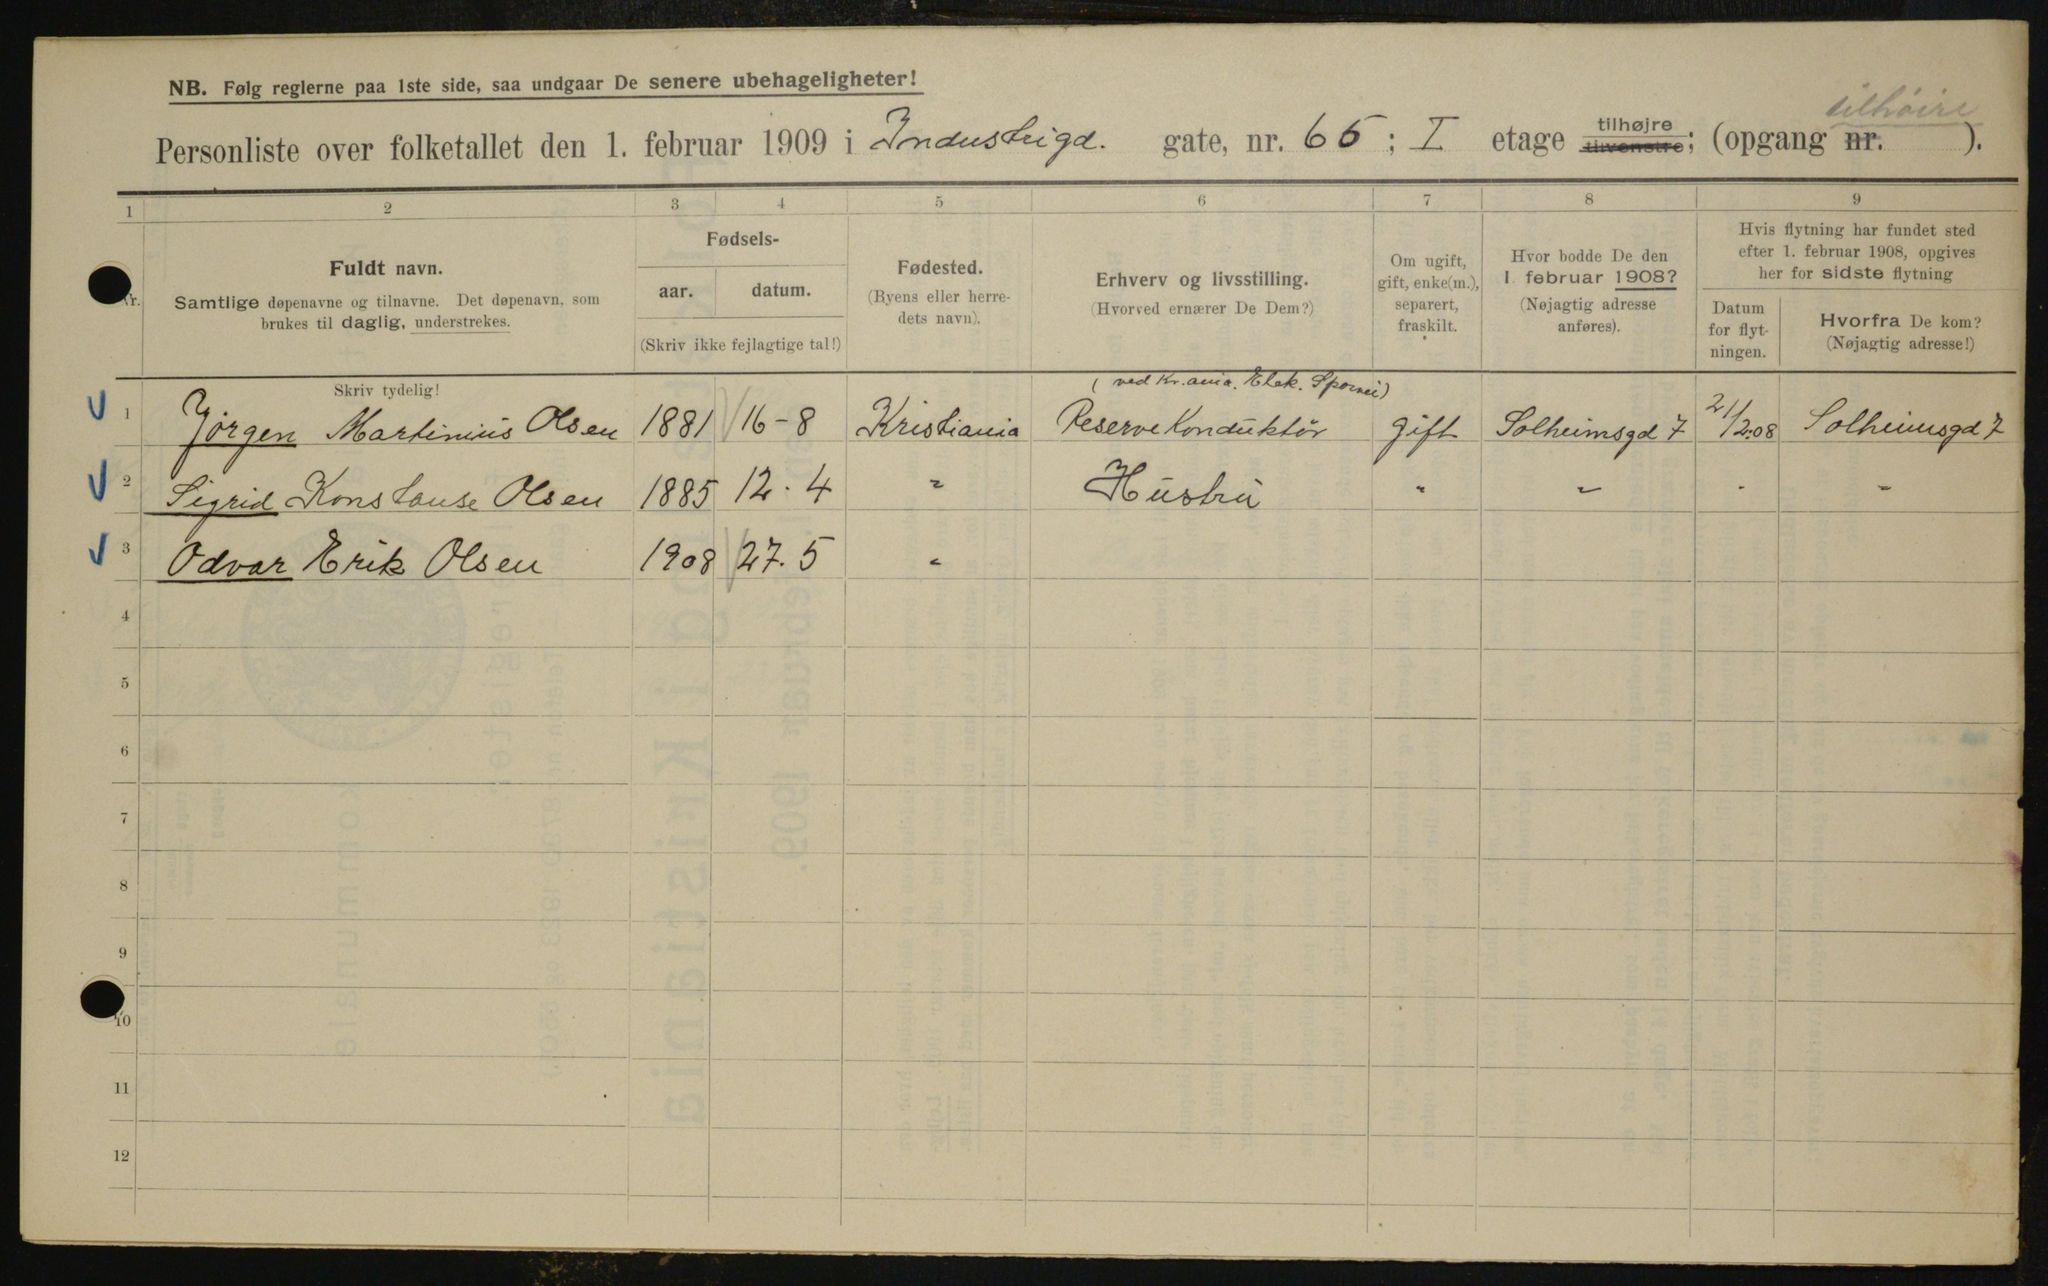 NB. Følg reglerne paa 1ste side, saa undgaar De senere ubehageligheter!
tilhöire
Personliste over folketallet den 1. februar 1909 i Industrigd. gate, nr. 65; I etage tilhøjre tilvenstre; (opgang nr. ).
1 2 3 4 5 6 7 8 9
Nr.
Fuldt navn.
Samtlige døpenavne og tilnavne. Det døpenavn, som
brukes til daglig, understrekes.
Fødsels-
aar. datum.
(Skriv ikke fejlagtige tal!)
Fødested.
(Byens eller herre-
dets navn).
Erhverv og livsstilling.
(Hvorved ernærer De Dem?)
Om ugift,
gift, enke(m.),
separert,
fraskilt.
Hvor bodde De den
1. februar 1908?
(Nøjagtig adresse
anføres).
Hvis flytning har fundet sted
efter 1. februar 1908, opgives
her for sidste flytning
Datum
for flyt-
ningen.
Hvorfra De kom?
(Nøjagtig adresse!)
Skriv tydelig!
(ved Kr.ania. Elek. Sporvei)
1 Jörgen Martinius Olsen 1881 16-8 Kristiania Reserve Konduktör gift Solheimsgd 7 21/2.08 Solheimsgd 7
2 Sigrid Konstanse Olsen 1885 12.4 " Hustru " " " "
3 Odvar Erik Olsen 1908 27.5 "
4
5
6
7
8
9
10
11
12